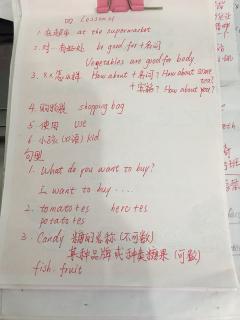 四 Lesson 1
1. 在超市 at the supermarket
2. 对…有好处 be good for + 名词
Vegetables are good for body.
3. ××怎么样 How about + 名词? How about some tea?
+ 代词? How about you?
4. 购物袋 shopping bag
5. 使用 use
6. 小孩(口语) kid
句型
1. What do you want to buy?
I want to buy ...
2. tomatoes heroes
potatoes
3. Candy 糖的总称 (不可数)
某种品牌或种类糖果 (可数)
fish. fruit